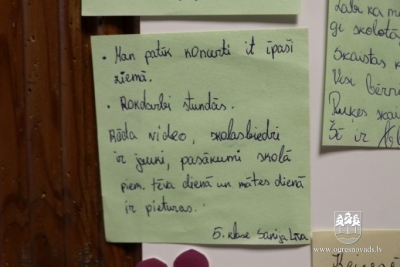 • Man patīk koncerti it īpaši
ziemā.
• Rokdarbi stundās.
Rāda video, skolasbiedri
ir jauki, pasākumi skolā
piem. tēva dienā un mātes dienā
ir pieturas.
5. klase Sanija Līva
Labi ka m
gi skolotāj
Skaistas k
Visi bērni
Puķes skai
Šī ir
www.ogresnovads.lv